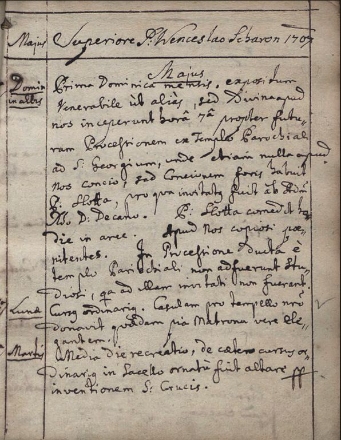 Majus Superiore P. Wenceslao Scharon 1709
Majus
Domin: Prima Dominica mensis, expositum
in albis Venerabile ut aliàs, sed Divina apud
nos inceperunt horâ 7â propter futu-
ram Processionem ex Templo Parochiali
ad S. Georgium, unde etiam nulla apud
nos concio, sed Concionem foris habuit
P. Slotta, pro qua invitatus fuit ab
D. Decano. P. Slotta comedit ho-
die in arce. Apud nos copiosi pœ-
nitentes. In Processione ducta è
templo Parochiali non adfuerunt Stu-
diosi, qa ad illam invitati non fuerant.
Lunæ Cursg ordinarig. Casulam pro tempello nro
donavit quædam pia Matrona vere ele-
gantem.
Martis Media die recreatio, de cætero cursus or-
dinarig in Sacello ornatū fuit altare
inventionem S. Crucis.